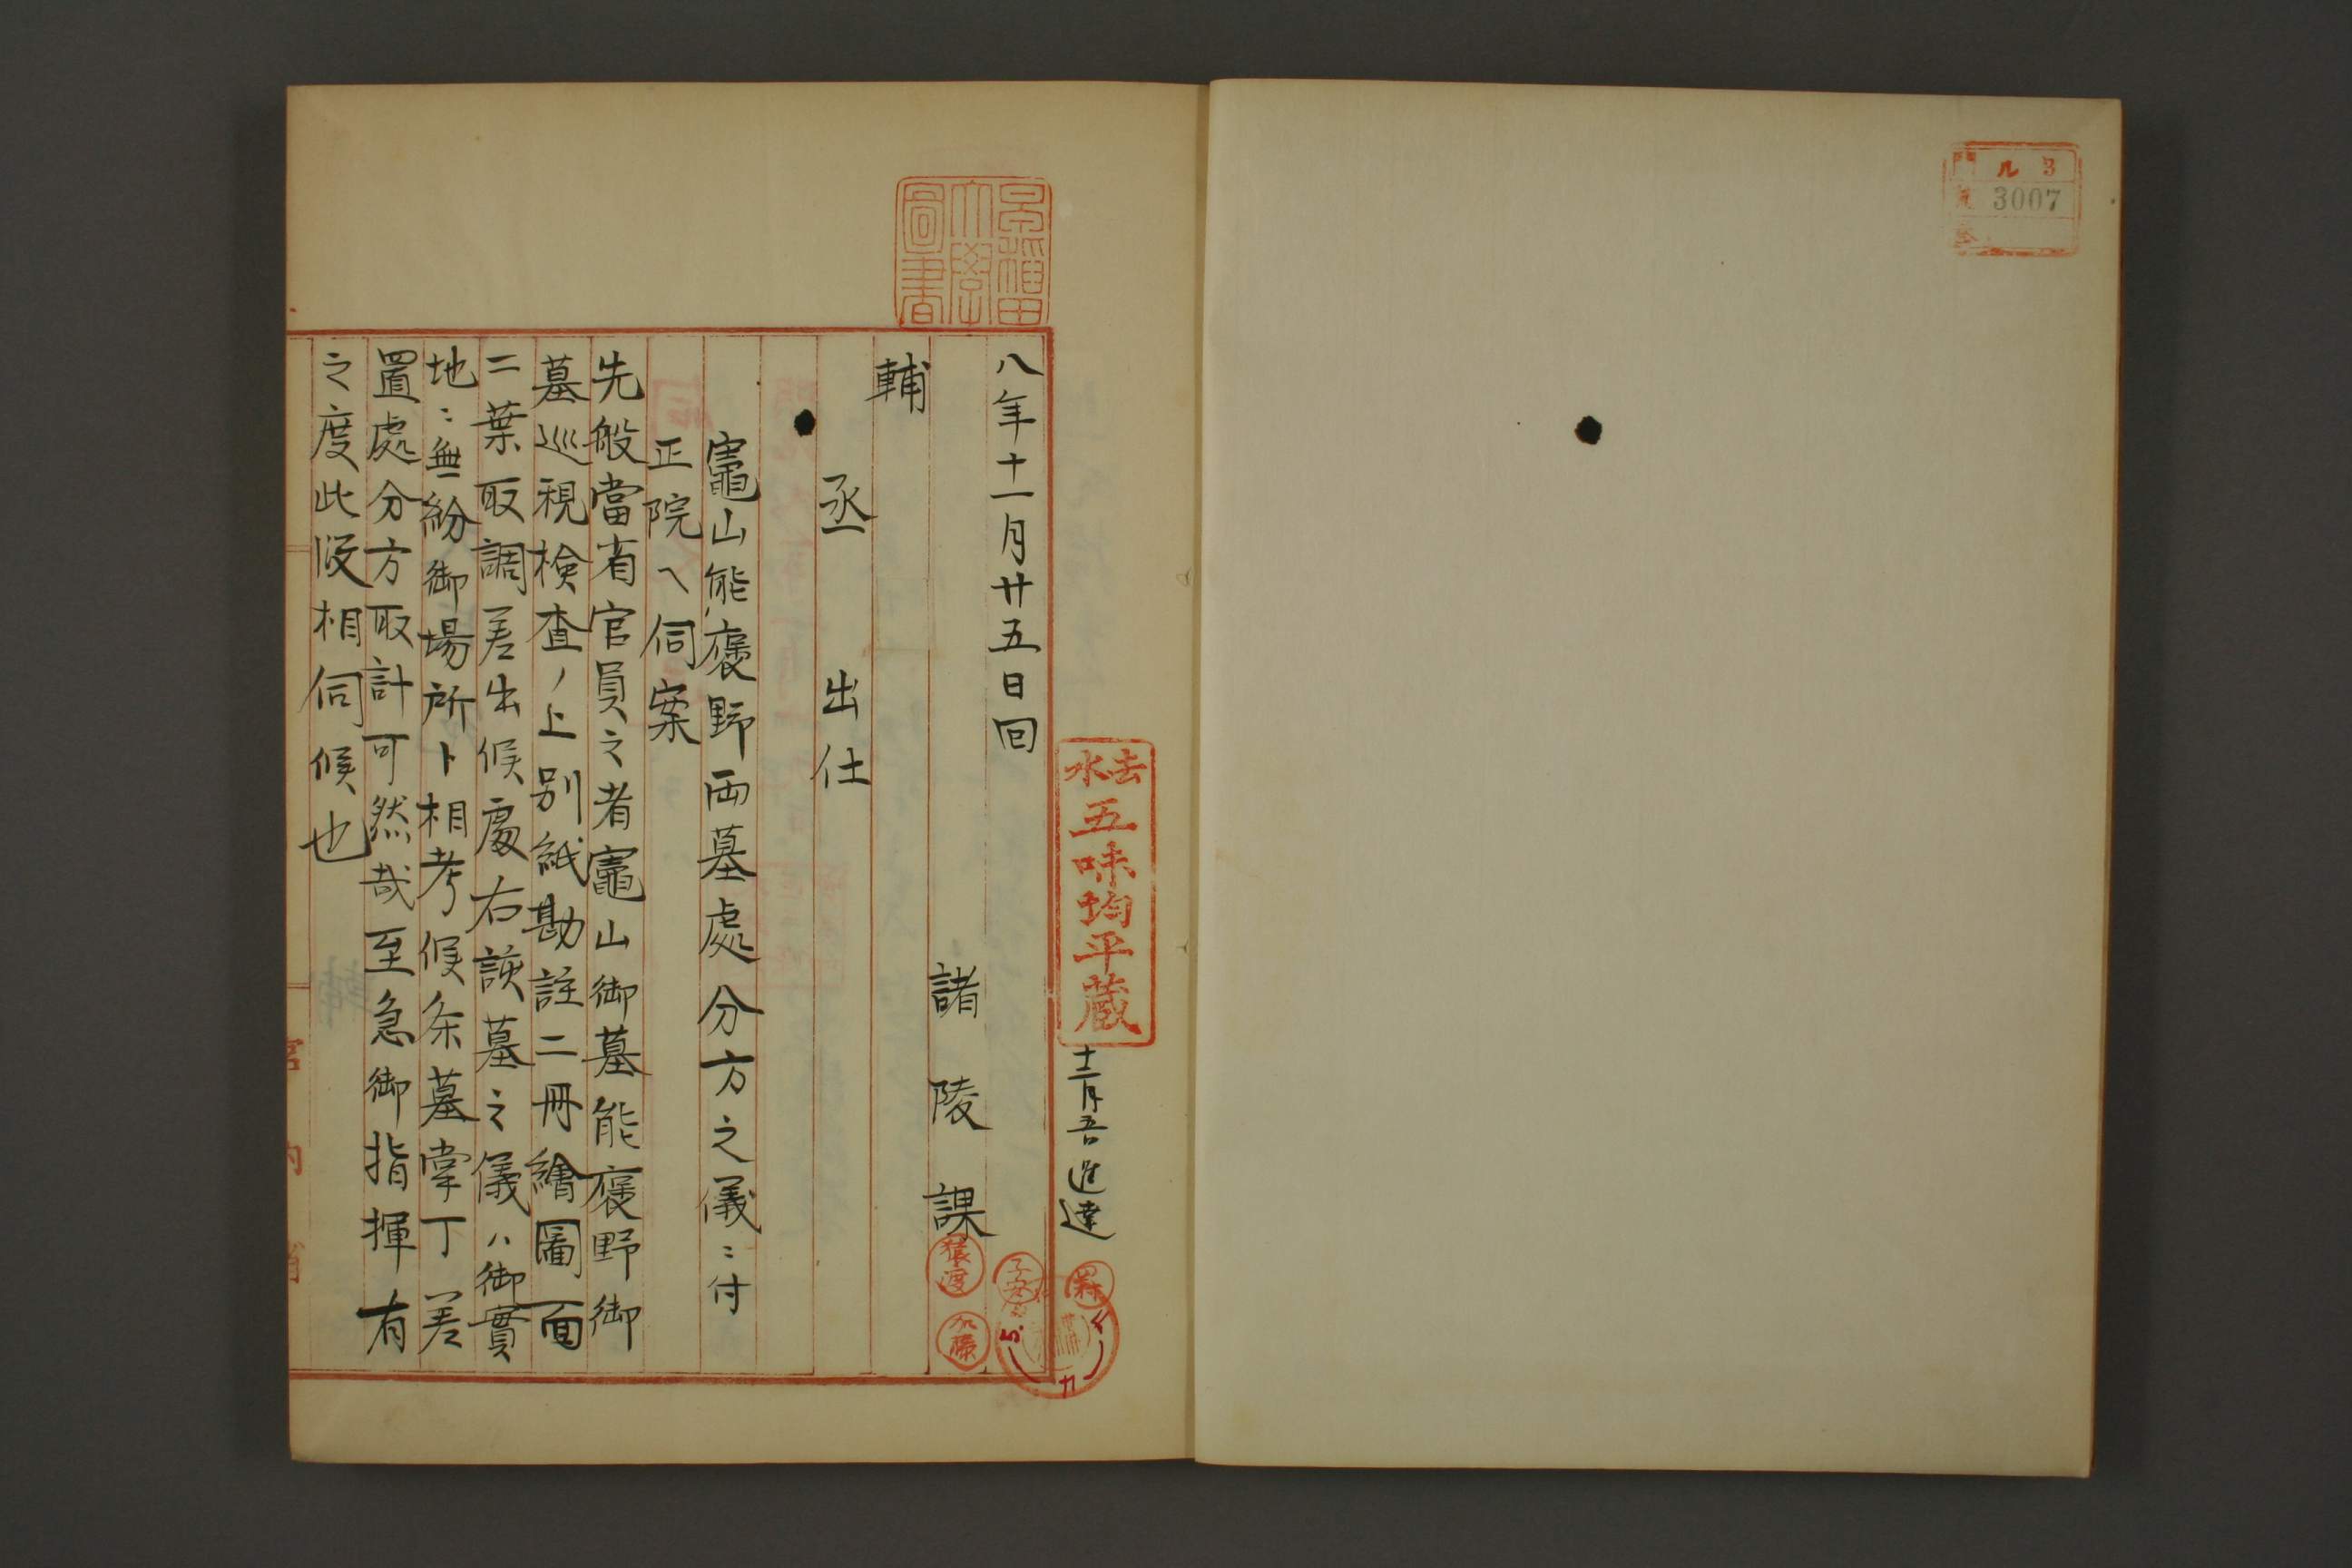 ル 3
3007
去水
五味均平蔵
十二月五日進達
早稲田大學圖書
八年十一月廿五日回
諸陵課
猿渡
加藤
子安
輔
丞 出仕
竈山能褒野両墓處分方之儀ニ付
正院ヘ伺案
先般當省官員之者竈山御墓能褒野御
墓巡視検査ノ上別紙勘註二冊繪圖面
二葉取調差出候處右該墓之儀ハ御實
地ニ無紛御場所ト相考候条墓掌丁差
置處分方取計可然哉至急御指揮有
之度此段相伺候也
宮内省